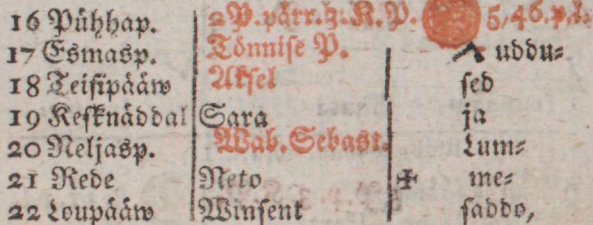 16 Pühhap. 2 P. pärr. 3. K. P. 5,46. p. l.
17 Esmasp. Tönnise P. uddu-
18 Teisipääw Aksel sed
19 Kesknäddal Sara ja
20 Neljasp. Wab. Sebast. Lum-
21 Rede Neto ✠ me-
22 Loupääw Winsent saddo,